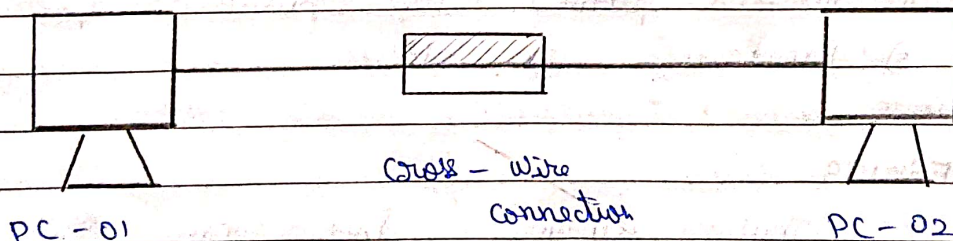 Cross - Wire
connection
PC - 01
PC - 02